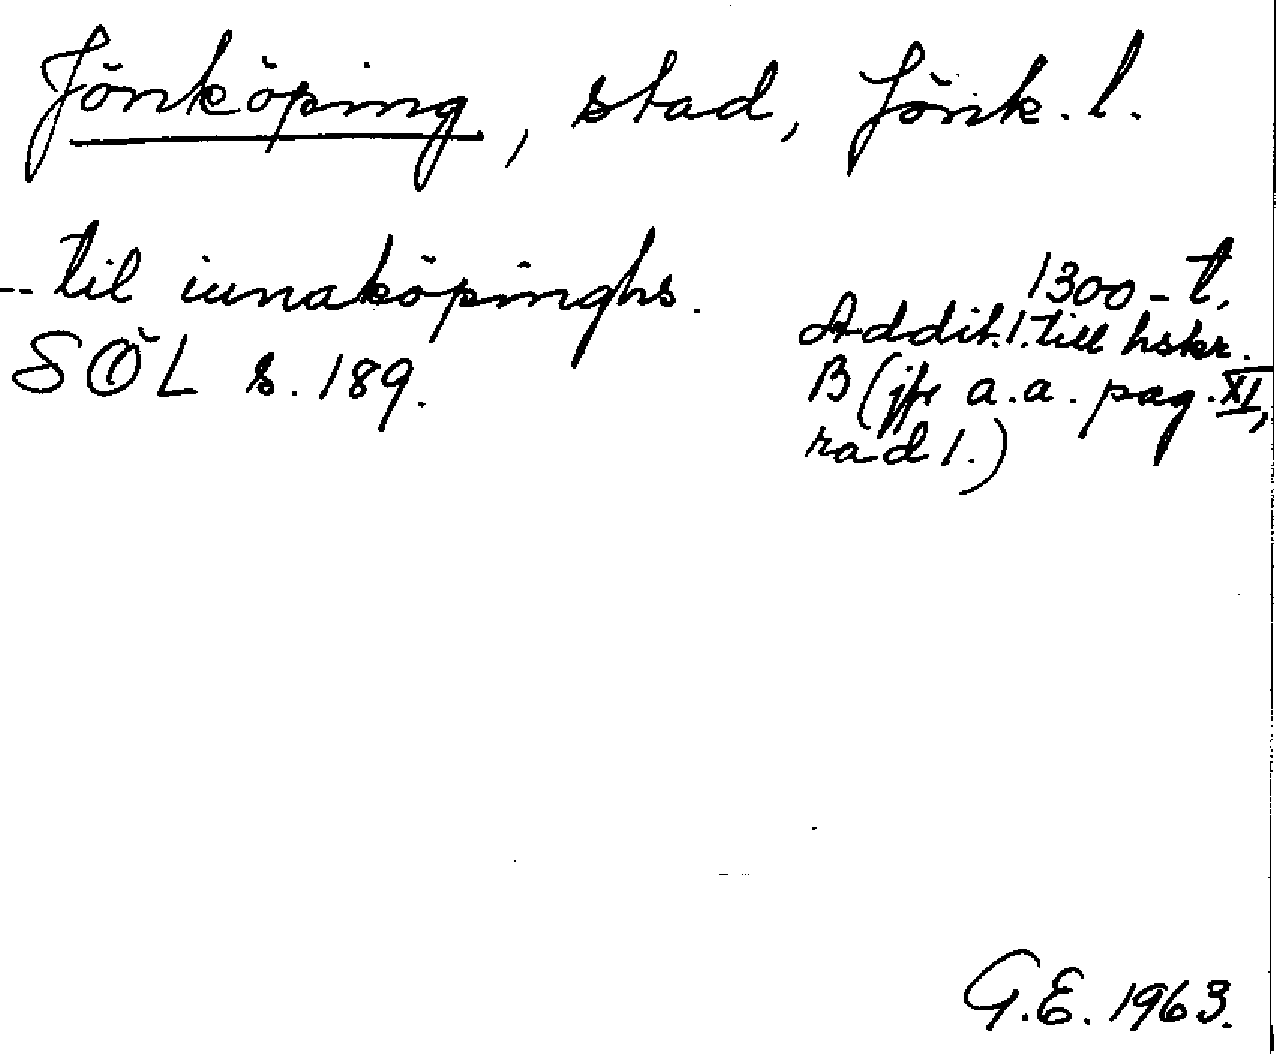 Jönköping, stad, Jönk. l.
-- til iunaköpinghs.
SÖL s. 189.
1300-t.
Addit. 1. till hskr.
B (jfr a.a. pag. XI,
rad 1.)
G.E. 1963.